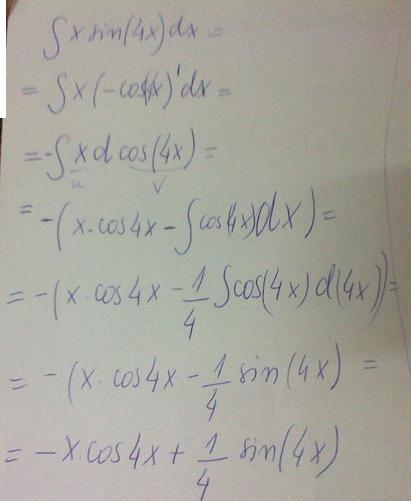 ∫ x sin(4x) dx =
= ∫ x (-cos4x)' dx =
= -∫ x d cos(4x) =
u v
= -(x·cos4x - ∫ cos(4x) dx) =
= -(x·cos4x - 1/4 ∫ cos(4x) d(4x)) =
= -(x·cos4x - 1/4 sin(4x) =
= -x·cos4x + 1/4 sin(4x)